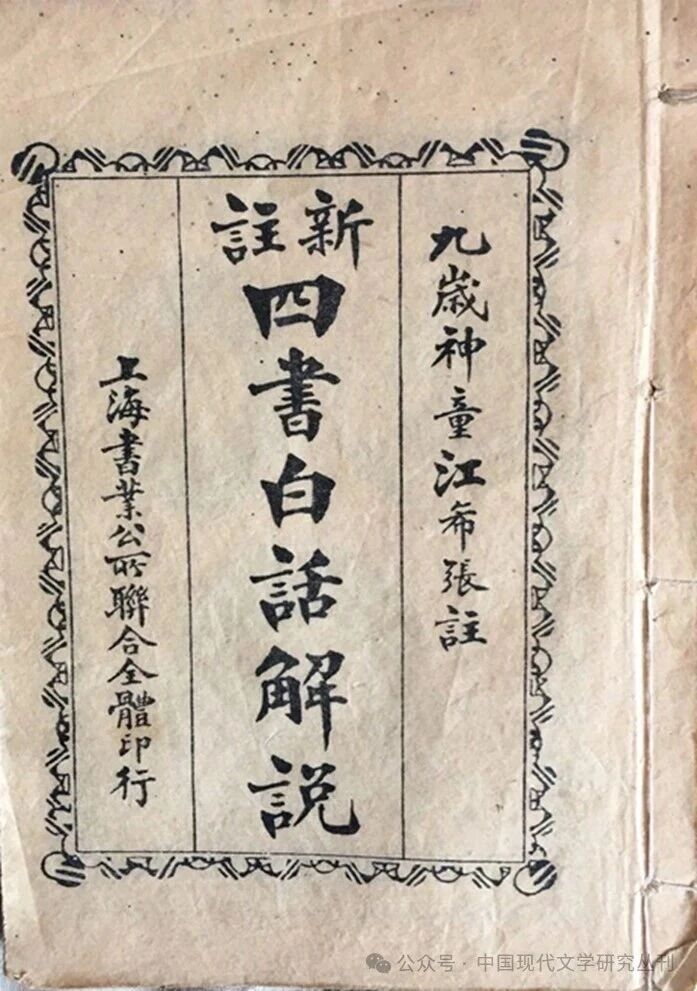 九歲神童江希張註
新註
四書白話解說
上海書業公所聯合全體印行
公众号·中国现代文学研究丛刊